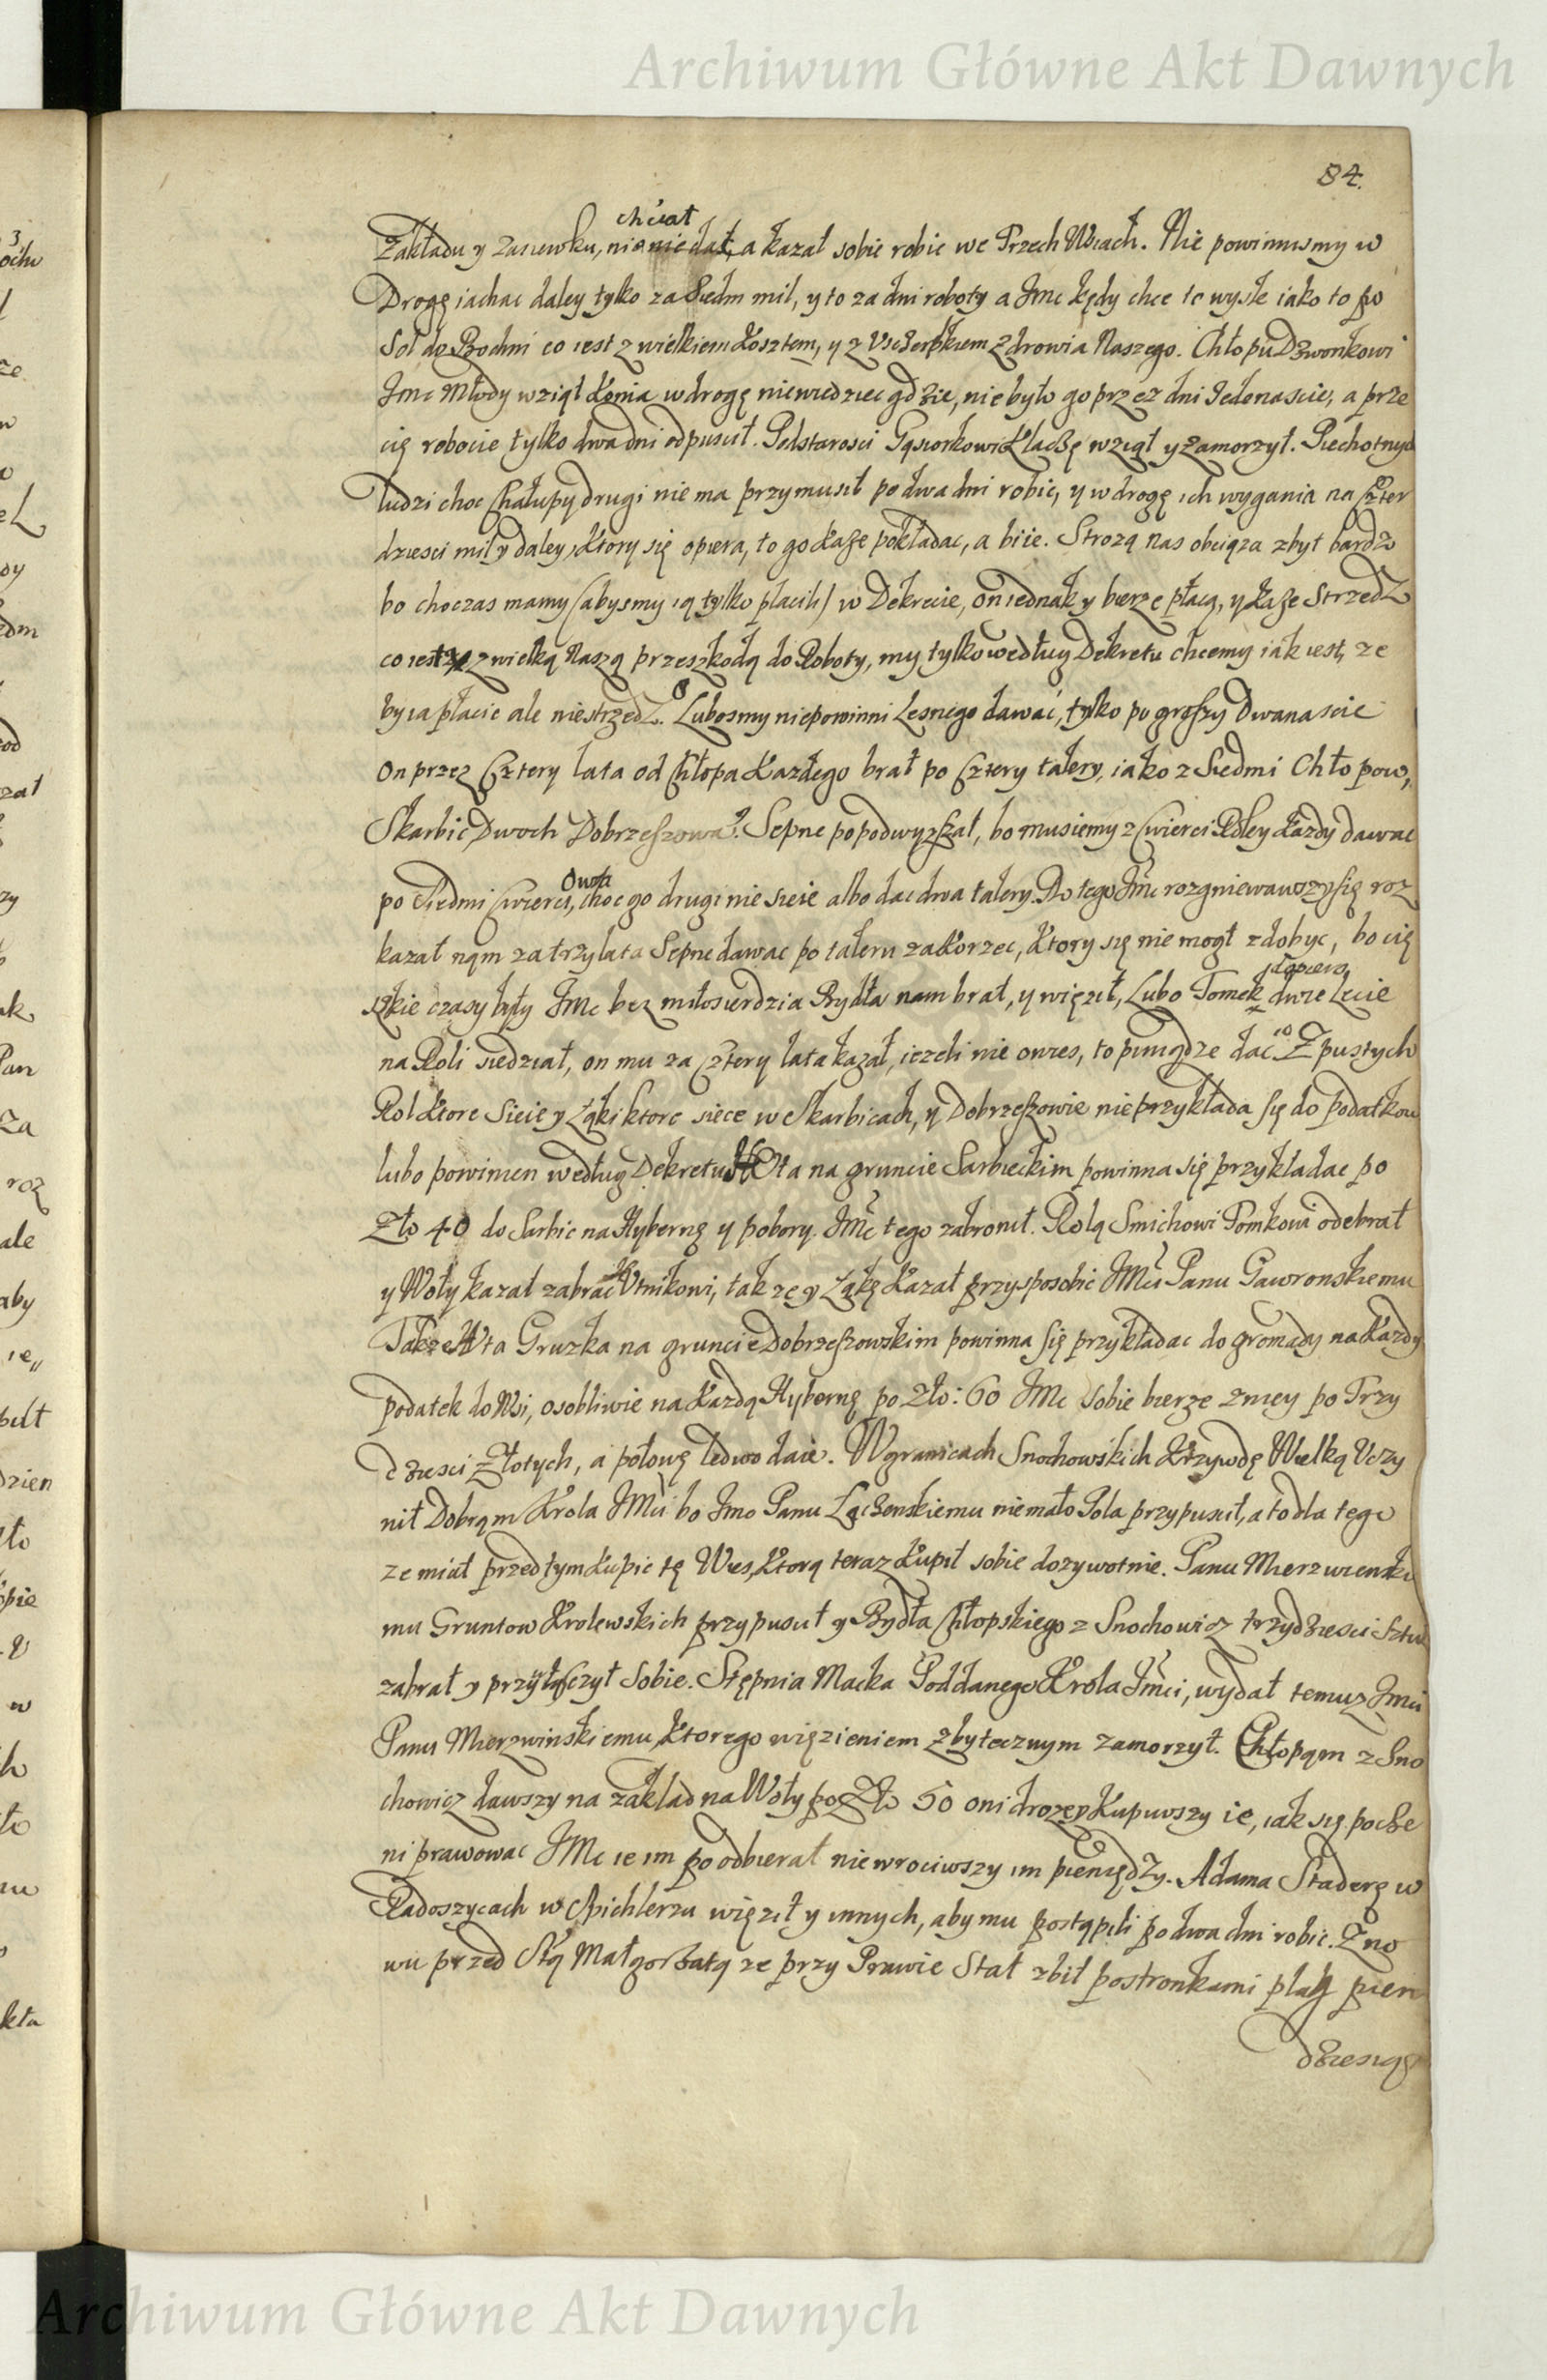 Archiwum Główne Akt Dawnych
84.
chciał
Zakładu y Zasiewku, nie nie dał, a kazał sobie robic we Trzech Wsiach. Nie powinnismy w
Drogę iachac daley tylko za Siedm mil, y to za dni roboty a Jmc kędy chce to wysle iako to po
Sol do Bochni co iest z wielkiem Kosztem, y z Vsczerpkiem Zdrowia Naszego. Chłopu Dzwonkowi
Jmc Młody wziął Konia w drogę niewiedziec gdzie, nie było go przez dni Jedenascie, a prze
cię robocie tylko dwa dni odpuscił. Podstarosci Gąsiorkowi Klaczę wziął y zamorzył. Piechotnych
ludzi choc Chałupy drugi nie ma przymusił po dwa dni robic, y w drogę ich wygania na Czter
dziesci mil y daley, Ktory się opiera, to go Kaze pokładac, a biie. Strozą nas obciąza zbyt bardzo
bo choczas mamy (abysmy ią tylko płacili) w Dekrecie, on iednak y bierze płacą, y Kaze Strzedz
co iest z wielką Naszą przeszkodą do Roboty, my tylko według Dekretu chcemy iak iest, ze
by ia płacic ale nie strzedz. Lubosmy niepowinni Lesnego dawać, tylko po groszy Dwanascie
On przez Cztery lata od Chłopa Kazdego brał po Cztery talery, iako z Siedmi Chłopow,
Skarbic, Dwoch Dobrzeszowa. Sepne popodwyzszał, bo musiemy z Cwierci Roley Kazdy dawac
Owsa
po Siedmi Cwierci, choc go drugi nie sieie albo dac dwa talery. Do tego Jmc rozgniewawszy się roz
kazał nąm za trzy lata Sepne dawac po taleru za Korzec, Ktory się nie mogł zdobyc, bo cię
szkie czasy były JMc bez miłosierdzia Bydła nam brał, y więził, Lubo Tomek dwie Lecie
na Roli siedział, on mu za Cztery lata kazał, iezeli nie owies, to piniądze dac. Z pustych
Rol Ktore Sieie y Łąki ktore siecze w Skarbicach, y Dobrzeszowie nie przykłada się do podatkow
lubo powinien według Dekretu. Huta na gruncie Sarbieckim powinna się przykładac po
Zło 40 do Sarbic na Hybernę y pobory. JMc tego zabronił. Rolą Smichowi Tomkowi odebrał
y Woły kazał zabrac Hutnikowi, tak ze y Łąkę Kazał przysposobic JMci Panu Gawronskiemu
Takze Huta Gruzka na gruncie Dobrzeszowskim powinna się przykładac do gromady na Kazdy
podatek do Wsi, osobliwie na Kazdą Hybernę po Zło: 60 JMc sobie bierze zniey po Trzy
dziesci Złotych, a połowę ledwo daie. W granicach Snochowskich Krzywdę Wielką Vczy
nił Dobrąm Krola JMci bo Jmo Panu Łączenskiemu niemało Pola przypuscił, a to dla tego
ze miał przed tym Kupic tę Wies, Ktorą teraz Kupił sobie dozywotnie. Panu Mierzwienski
mu Gruntow Krolewskich przypuscił y Bydła Chłopskiego z Snochowicz trzydziesci Sztuk
zabrał y przyłączył Sobie. Stępnia Macka Poddanego Krola Jmci, wydał temuz Jmci
Panu Mierzwinskiemu, Ktorego więzieniem zbytecznym zamorzył. Chłopąm z Sno
chowicz dawszy na zakład na Woły po Zło 50 oni drozey Kupiwszy ie, iak się pocze
ni prawowac JMc ie im poodbierał nie wrociwszy im pieniędzy. Adama Staderę w
Radoszycach w Spichlerzu więził y innych, aby mu postąpili po dwa dni robic. Zno
wu przed Stą Małgorzatą ze przy Prawie Stał zbił postronkami plag pien
dziesiąt
Archiwum Główne Akt Dawnych